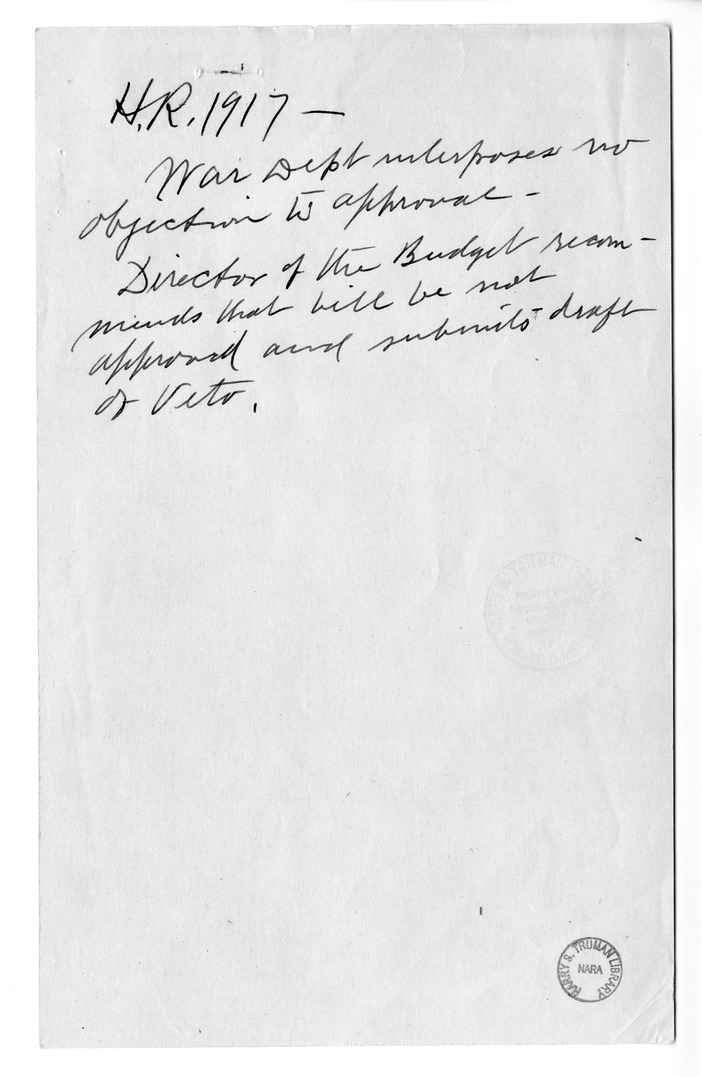 H.R. 1917 —
War Dept interposes no
objection to approval —
Director of the Budget recom-
mends that bill be not
approved and submits draft
of Veto.
HARRY S. TRUMAN LIBRARY
NARA